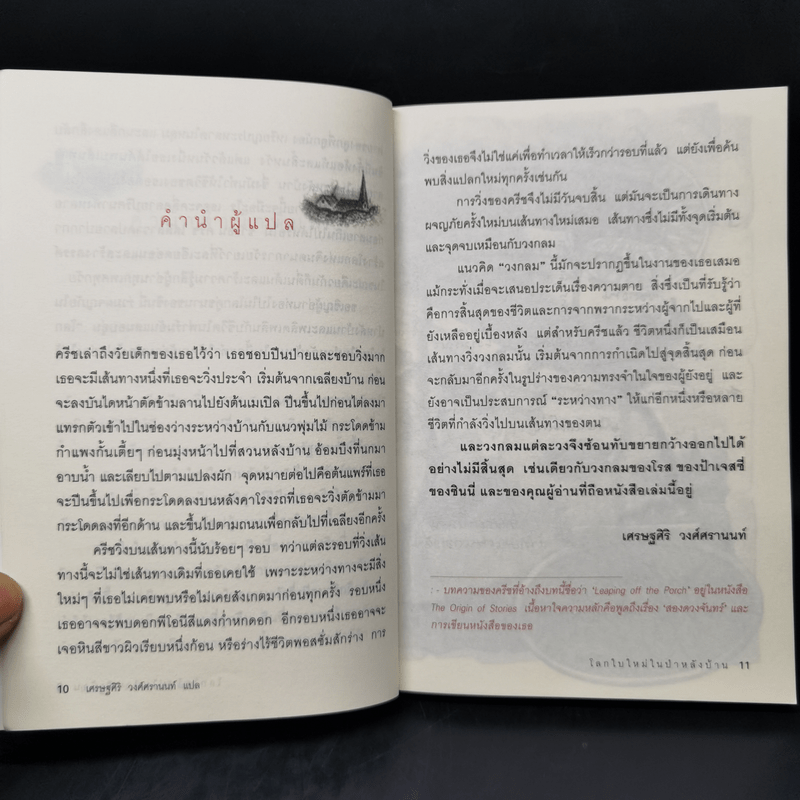 คำนำผู้แปล
ครีชเล่าถึงวัยเด็กของเธอไว้ว่า เธอชอบปีนป่ายและชอบวิ่งมาก
เธอจะมีเส้นทางหนึ่งที่เธอจะวิ่งประจำ เริ่มต้นจากเฉลียงบ้าน ก่อน
จะลงบันไดหน้าตัดข้ามลานไปยังต้นเมเปิล ปีนขึ้นไปก่อนไต่ลงมา
แทรกตัวเข้าไปในช่องว่างระหว่างบ้านกับแนวพุ่มไม้ กระโดดข้าม
กำแพงกั้นเตี้ยๆ ก่อนมุ่งหน้าไปที่สวนหลังบ้าน อ้อมบึงที่นกมา
อาบน้ำ และเลียบไปตามแปลงผัก จุดหมายต่อไปคือต้นแพร์ที่เธอ
จะปีนขึ้นไปเพื่อกระโดดลงบนหลังคาโรงรถที่เธอจะวิ่งตัดข้ามมา
กระโดดลงที่อีกด้าน และขึ้นไปตามถนนเพื่อกลับไปที่เฉลียงอีกครั้ง
ครีชวิ่งบนเส้นทางนี้นับร้อยๆ รอบ ทว่าแต่ละรอบที่วิ่งเส้น
ทางนี้จะไม่ใช่เส้นทางเดิมที่เธอเคยใช้ เพราะระหว่างทางจะมีสิ่ง
ใหม่ๆ ที่เธอไม่เคยพบหรือไม่เคยสังเกตมาก่อนทุกครั้ง รอบหนึ่ง
เธออาจจะพบดอกพีโอนีสีแดงก่ำหกดอก อีกรอบหนึ่งเธออาจจะ
เจอหินสีขาวผิวเรียบหนึ่งก้อน หรือร่างไร้ชีวิตพอสซั่มสักร่าง การ
10 เศรษฐศิริ วงศ์ศรานนท์ แปล
วิ่งของเธอจึงไม่ใช่แค่เพื่อทำเวลาให้เร็วกว่ารอบที่แล้ว แต่ยังเพื่อค้น
พบสิ่งแปลกใหม่ทุกครั้งเช่นกัน
การวิ่งของครีชจึงไม่มีวันจบสิ้น แต่มันจะเป็นการเดินทาง
ผจญภัยครั้งใหม่บนเส้นทางใหม่เสมอ เส้นทางซึ่งไม่มีทั้งจุดเริ่มต้น
และจุดจบเหมือนกับวงกลม
แนวคิด “วงกลม” นี้มักจะปรากฏขึ้นในงานของเธอเสมอ
แม้กระทั่งเมื่อจะเสนอประเด็นเรื่องความตาย สิ่งซึ่งเป็นที่รับรู้ว่า
คือการสิ้นสุดของชีวิตและการจากพรากระหว่างผู้จากไปและผู้ที่
ยังเหลืออยู่เบื้องหลัง แต่สำหรับครีชแล้ว ชีวิตหนึ่งก็เป็นเสมือน
เส้นทางวิ่งวงกลมนั้น เริ่มต้นจากการกำเนิดไปสู่จุดสิ้นสุด ก่อน
จะกลับมาอีกครั้งในรูปร่างของความทรงจำในใจของผู้ยังอยู่ และ
ยังอาจเป็นประสบการณ์ “ระหว่างทาง” ให้แก่อีกหนึ่งหรือหลาย
ชีวิตที่กำลังวิ่งไปบนเส้นทางของตน
และวงกลมแต่ละวงจึงซ้อนทับขยายกว้างออกไปได้
อย่างไม่มีสิ้นสุด เช่นเดียวกับวงกลมของโรส ของป้าเจสซี่
ของซินนี่ และของคุณผู้อ่านที่ถือหนังสือเล่มนี้อยู่
เศรษฐศิริ วงศ์ศรานนท์
: - บทความของครีชที่อ้างถึงบทนี้ชื่อว่า ‘Leaping off the Porch’ อยู่ในหนังสือ
The Origin of Stories เนื้อหาใจความหลักคือพูดถึงเรื่อง ‘สองดวงจันทร์’ และ
การเขียนหนังสือของเธอ
โลกใบใหม่ในป่าหลังบ้าน 11